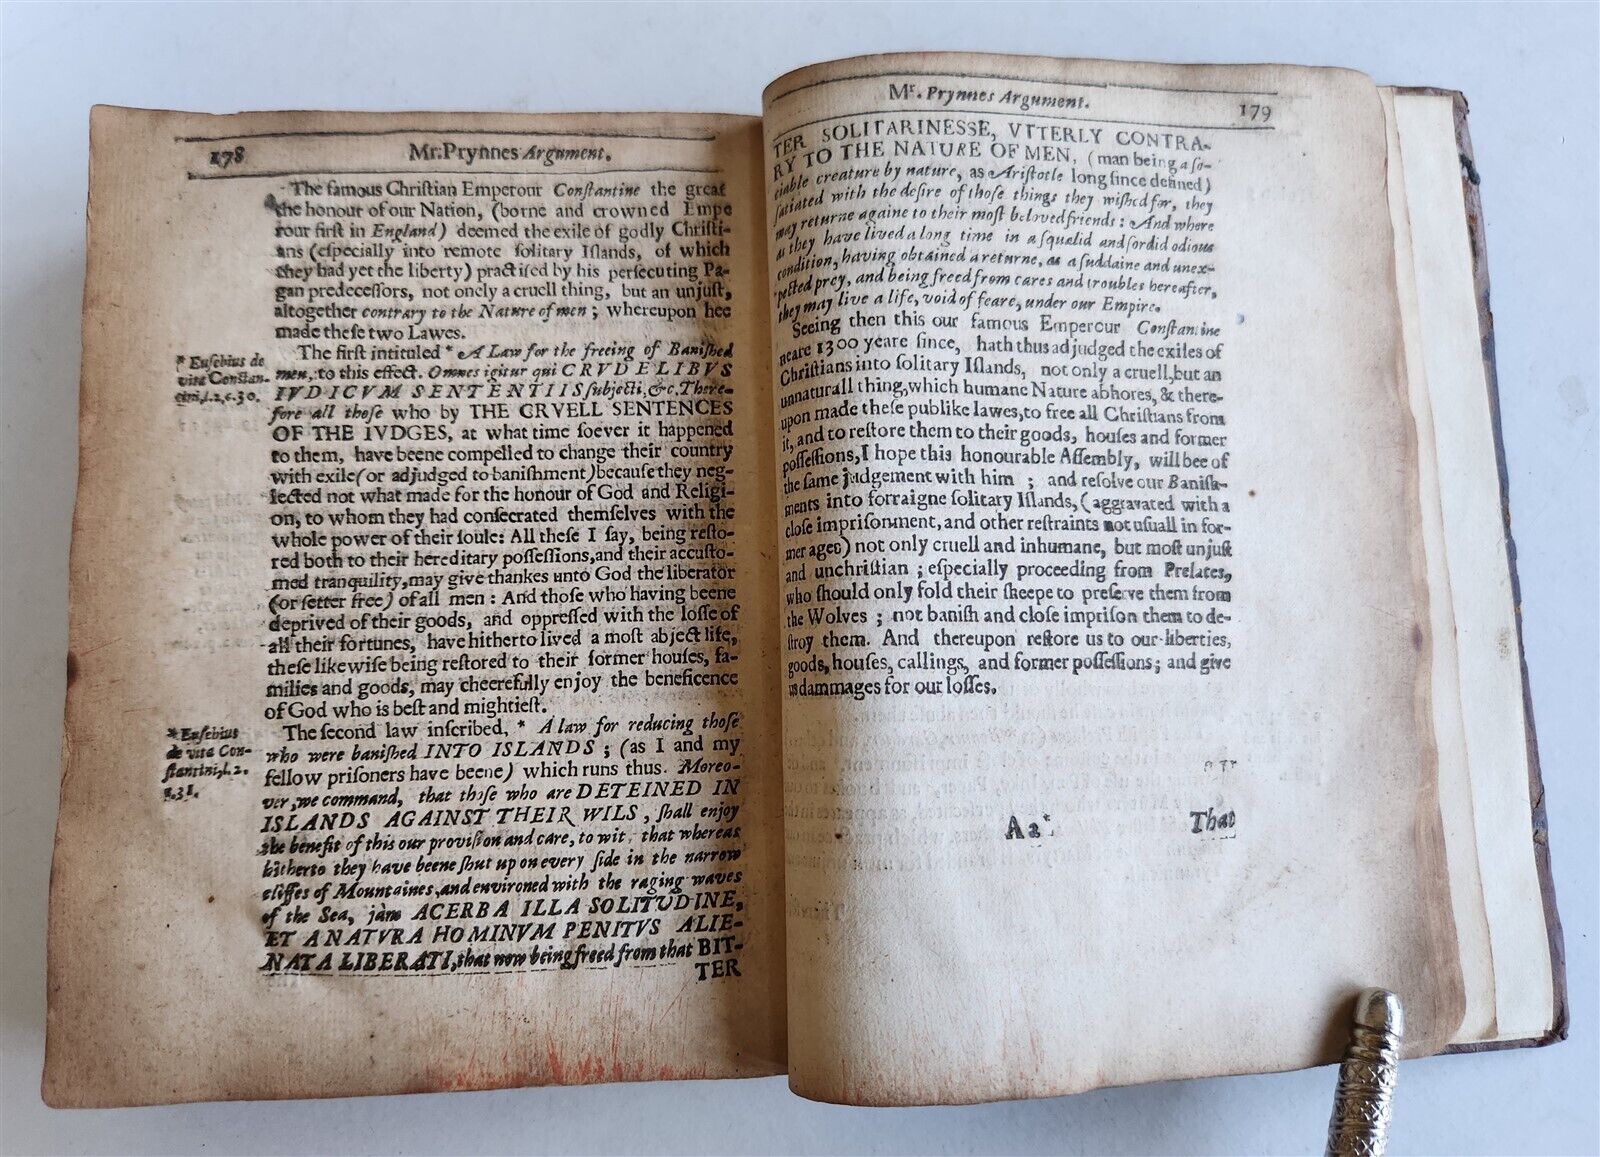 178 Mr. Prynnes Argument.
The famous Chriſtian Emperour Conſtantine the great
the honour of our Nation, (borne and crowned Empe
rour firſt in England) deemed the exile of godly Chriſti-
ans (eſpecially into remote ſolitary Iſlands, of which
they had yet the liberty) practiſed by his perſecuting Pa-
gan predeceſſors, not onely a cruell thing, but an unjuſt,
altogether contrary to the Nature of men; whereupon hee
made theſe two Lawes.
The firſt intituled * A Law for the freeing of Baniſhed
men, to this effect. Omnes igitur qui CRVDELIBVS
IVDICVM SENTENTIIS ſubjecti, &c. There-
fore all thoſe who by THE CRVELL SENTENCES
OF THE IVDGES, at what time ſoever it happened
to them, have beene compelled to change their country
with exile (or adjudged to baniſhment) becauſe they neg-
lected not what made for the honour of God and Religi-
on, to whom they had conſecrated themſelves with the
whole power of their ſoule: All theſe I ſay, being reſto-
red both to their hereditary poſſeſſions, and their accuſto-
med tranquility, may give thankes unto God the liberator
(or ſetter free) of all men: And thoſe who having beene
deprived of their goods, and oppreſſed with the loſſe of
all their fortunes, have hitherto lived a moſt abject life,
theſe likewiſe being reſtored to their former houſes, fa-
milies and goods, may cheerefully enjoy the beneficence
of God who is beſt and mightieſt.
The second law inſcribed, * A law for reducing thoſe
who were baniſhed INTO ISLANDS; (as I and my
fellow priſoners have beene) which runs thus. Moreo-
ver, we command, that thoſe who are DETEINED IN
ISLANDS AGAINST THEIR WILS, ſhall enjoy
the benefit of this our proviſion and care, to wit, that whereas
hitherto they have beene ſhut up on every ſide in the narrow
cliffes of Mountaines, and environed with the raging waves
of the Sea, jàm ACERBA ILLA SOLITUDINE,
ET A NATVRA HOMINVM PENITVS ALIE-
NATA LIBERATI, that now being freed from that BIT-
TER
* Euſebius de
vita Conſtan-
tini, l. 2. c. 30.
* Euſebius
de vita Con-
ſtantini, l. 2.
c. 31.
Mr. Prynnes Argument. 179
TER SOLITARINESSE, VTTERLY CONTRA-
RY TO THE NATURE OF MEN, (man being a ſo-
ciable creature by nature, as Ariſtotle long ſince defined)
ſatiated with the deſire of thoſe things they wiſhed for, they
may returne againe to their moſt beloved friends: And where
as they have lived a long time in a ſqualid and ſordid odious
condition, having obtained a returne, as a ſuddaine and unex-
pected prey, and being freed from cares and troubles hereafter,
they may live a life, void of feare, under our Empire.
Seeing then this our famous Emperour Conſtantine
neare 1300 yeare ſince, hath thus adjudged the exiles of
Chriſtians into ſolitary Iſlands, not only a cruell, but an
unnaturall thing, which humane Nature abhores, & there-
upon made theſe publike lawes, to free all Chriſtians from
it, and to reſtore them to their goods, houſes and former
poſſeſſions, I hope this honourable Aſſembly, will bee of
the ſame judgement with him; and reſolve our Baniſh-
ments into forraigne ſolitary Iſlands, (aggravated with a
cloſe impriſonment, and other reſtraints not uſuall in for-
mer ages) not only cruell and inhumane, but moſt unjuſt
and unchriſtian; eſpecially proceeding from Prelates,
who ſhould only fold their ſheepe to preſerve them from
the Wolves; not baniſh and cloſe impriſon them to de-
ſtroy them. And thereupon reſtore us to our liberties,
goods, houſes, callings, and former poſſeſſions; and give
us dammages for our loſſes.
Aa
That